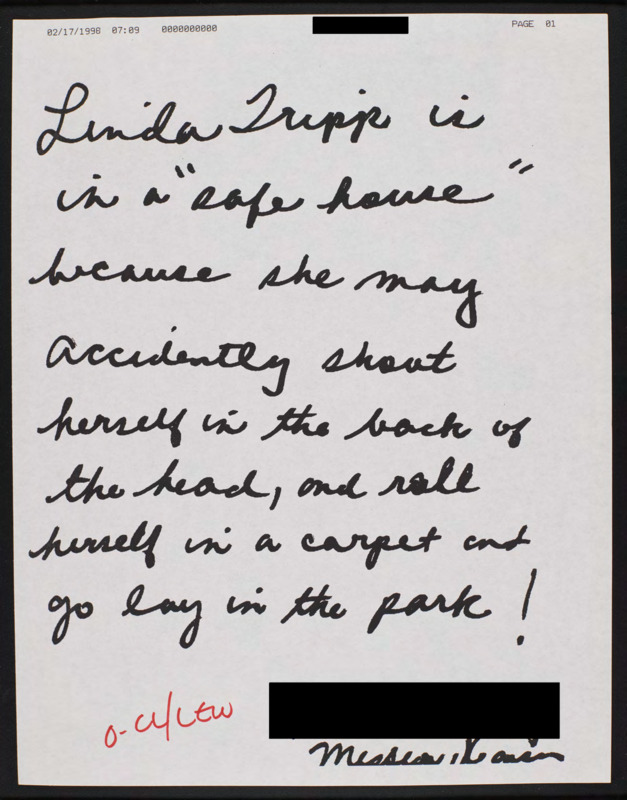 02/17/1998 07:09 0000000000 PAGE 01
Linda Tripp is
in a "safe house"
because she may
accidently shoot
herself in the back of
the head, and roll
herself in a carpet and
go lay in the park!
O-CL/LEW